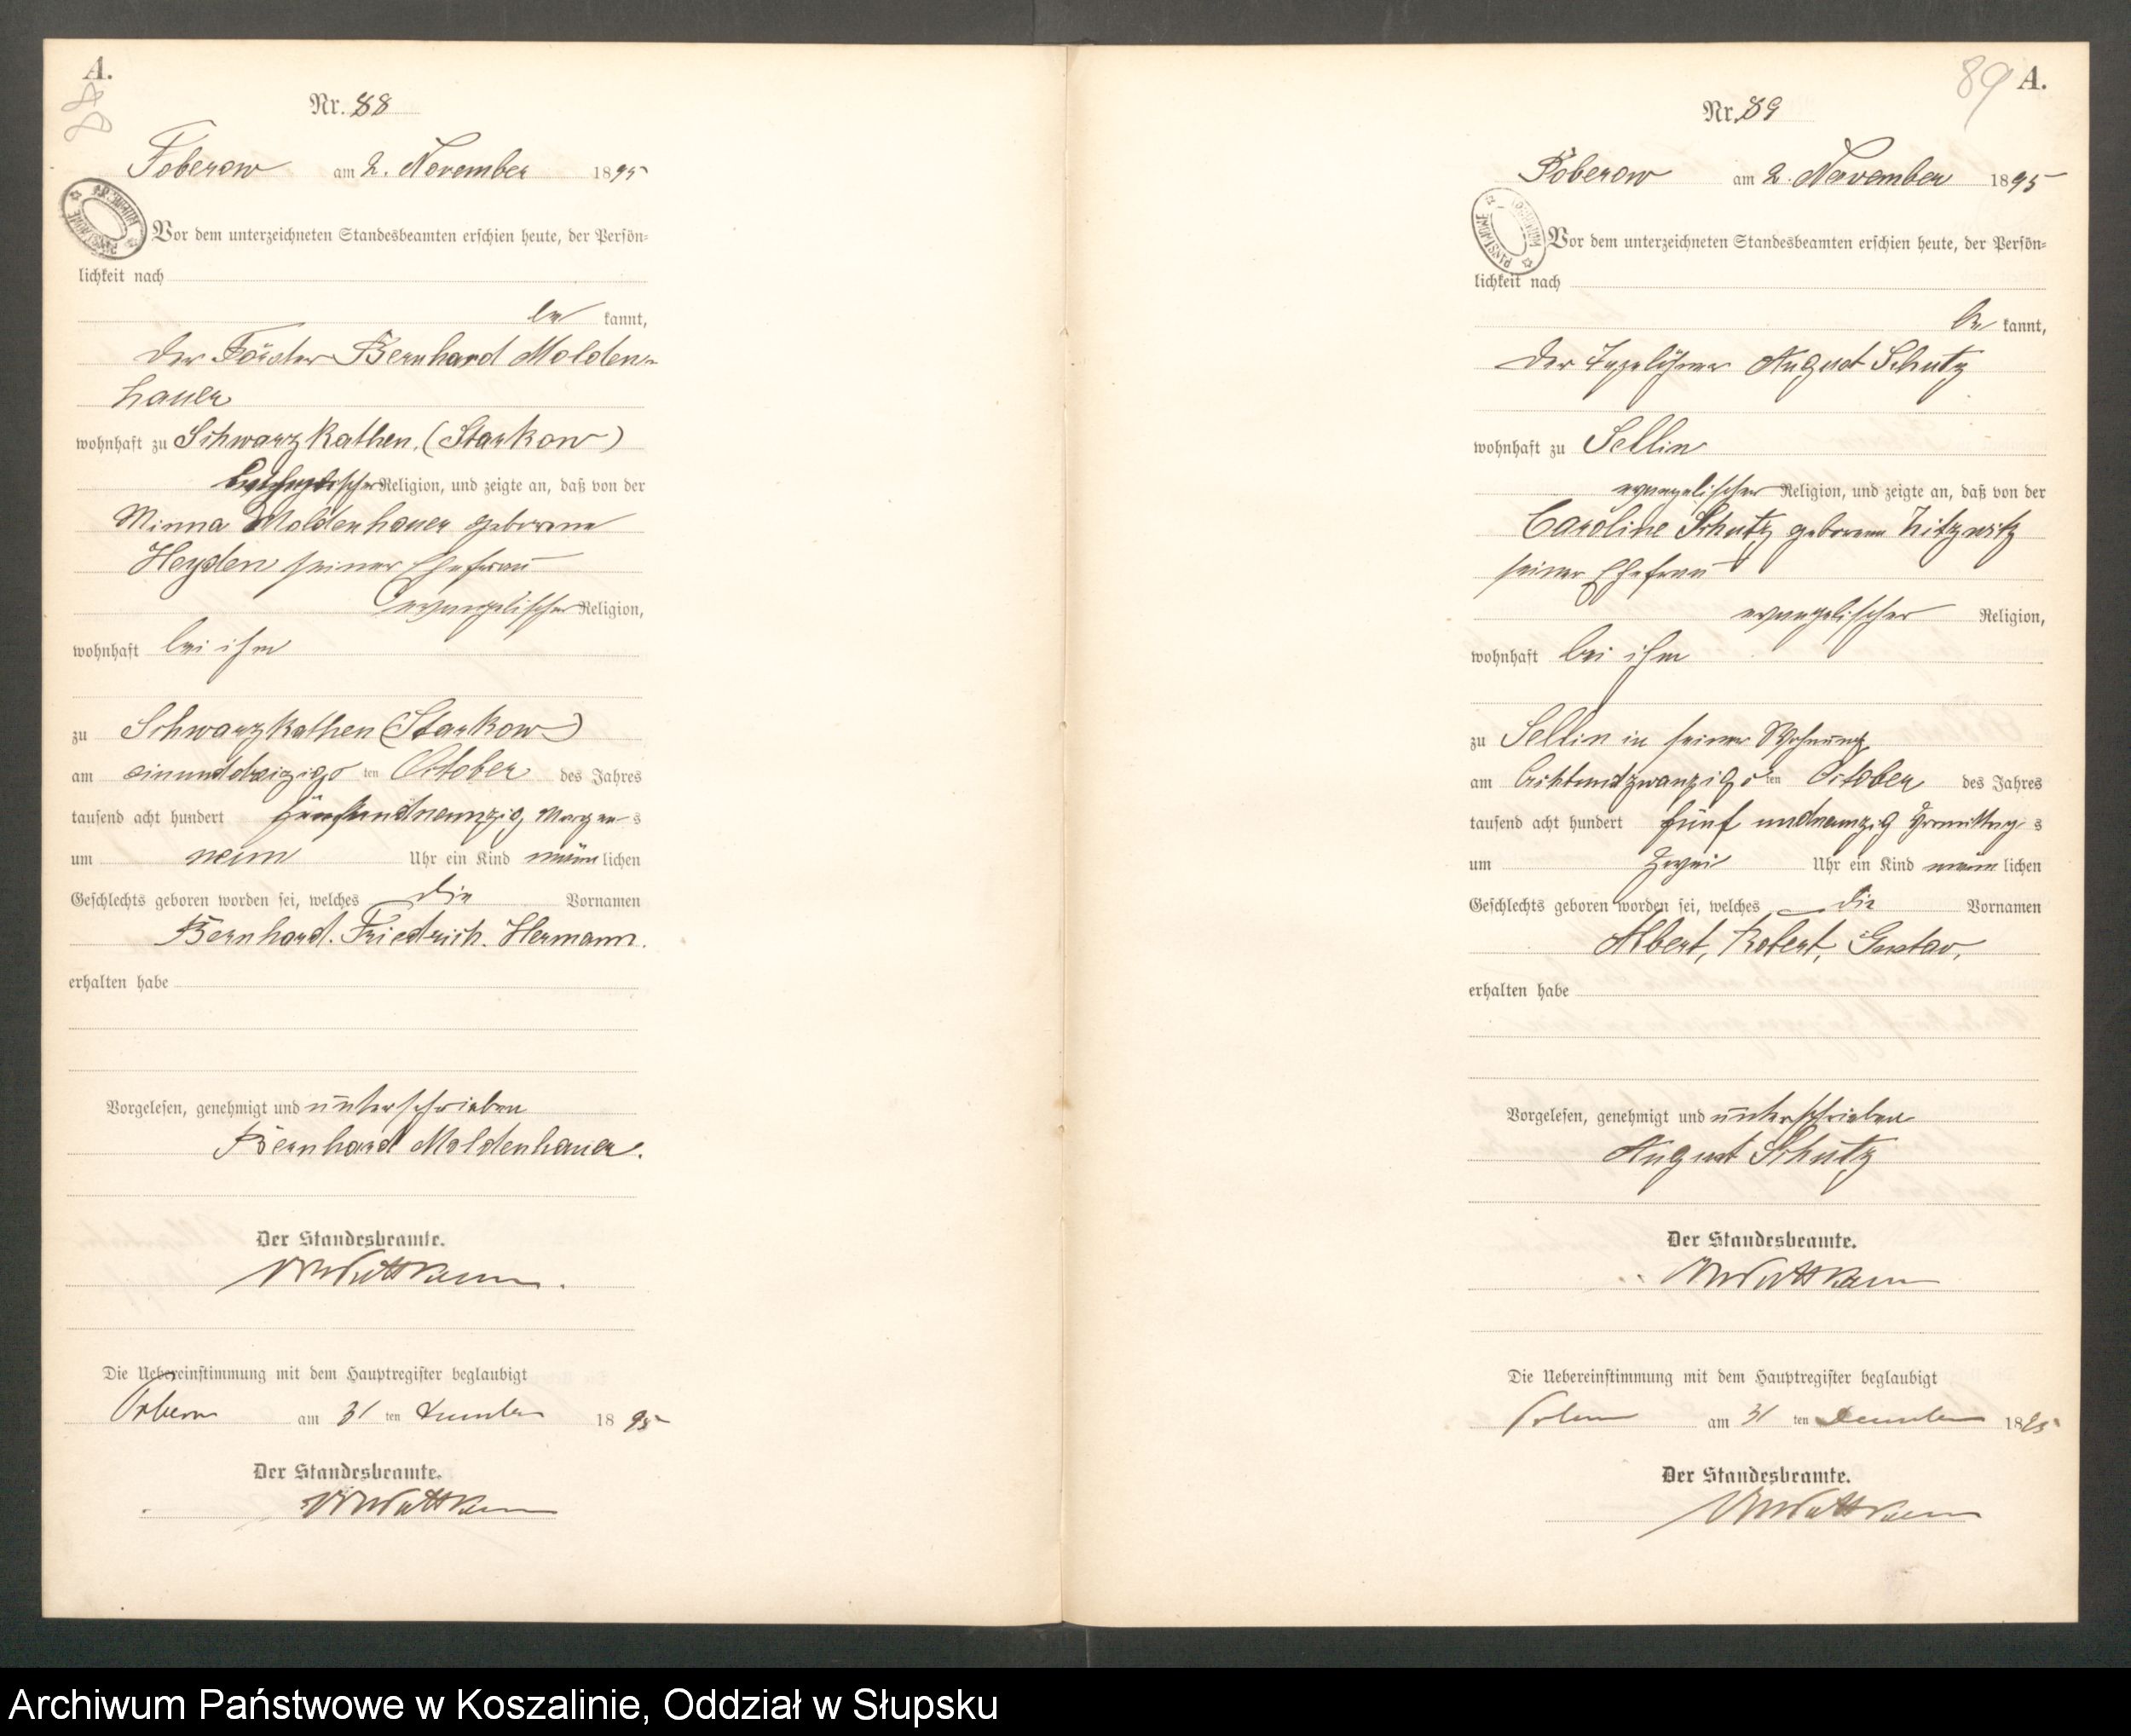 A.
88
Nr. 88
Poberow am 2. November 1895
Vor dem unterzeichneten Standesbeamten erschien heute, der Persön-
lichkeit nach
be kannt,
der Förster Bernhard Molden-
hauer
wohnhaft zu Schwarzkathen (Starkow)
Religion, und zeigte an, daß von der
Minna Moldenhauer geborene
Heyden seiner Ehefrau
evangelischer Religion,
wohnhaft bei ihm
zu Schwarzkathen (Starkow)
am einunddreizigs ten October des Jahres
tausend acht hundert fünfundneunzig Morgens
um neun Uhr ein Kind männlichen
Geschlechts geboren worden sei, welches die Vornamen
Bernhard. Friedrich. Hermann.
erhalten habe
Vorgelesen, genehmigt und unterschrieben
Bernhard Moldenhauer.
Der Standesbeamte.
Die Uebereinstimmung mit dem Hauptregister beglaubigt
am 31 ten Dezember 1895
Der Standesbeamte.
89 A.
Nr. 89
Poberow am 2. November 1895
Vor dem unterzeichneten Standesbeamten erschien heute, der Persön-
lichkeit nach
be kannt,
der Tagelöhner August Schutz
wohnhaft zu Sellin
evangelischer Religion, und zeigte an, daß von der
Caroline Schutz geborene Zitzwitz
seiner Ehefrau
evangelischer Religion,
wohnhaft bei ihm
zu Sellin in seiner Wohnung
am Achtundzwanzigs ten October des Jahres
tausend acht hundert fünf undneunzig Vormittags
um Zwei Uhr ein Kind männlichen
Geschlechts geboren worden sei, welches die Vornamen
Albert, Robert, Gustav,
erhalten habe
Vorgelesen, genehmigt und unterschrieben
August Schutz
Der Standesbeamte.
Die Uebereinstimmung mit dem Hauptregister beglaubigt
am 31 ten Dezember 1895
Der Standesbeamte.
Archiwum Państwowe w Koszalinie, Oddział w Słupsku